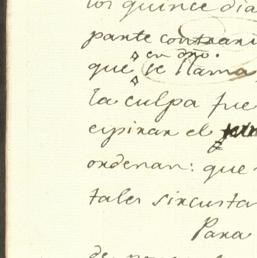 los quince dia
pante contrari
en dro.
que se llama
la culpa fue
espirar el
ordenan: que
tales sircusta
Para